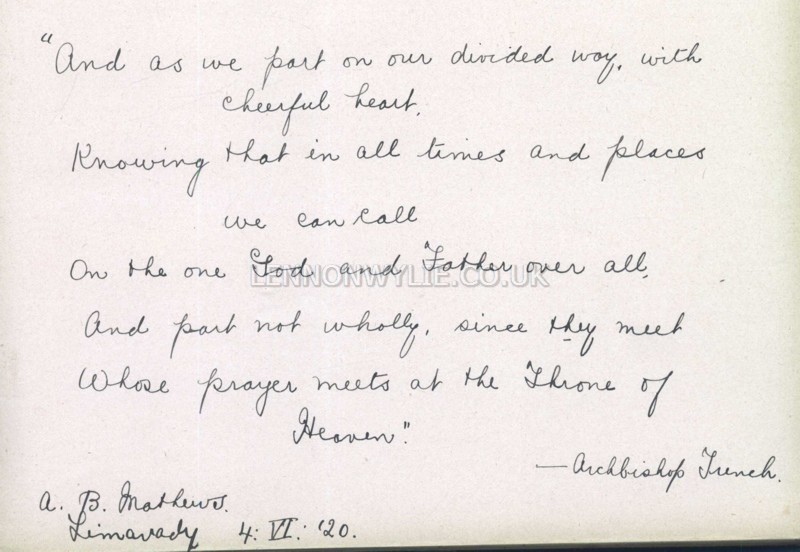 "And as we part on our divided way, with
cheerful heart,
Knowing that in all times and places
we can call
On the one God and Father over all,
LENNONWYLIE.CO.UK
And part not wholly, since they meet
Whose prayer meets at the Throne of
Heaven".
—Archbishop Trench.
A. B. Mathews.
Limavady 4: VI: '20.